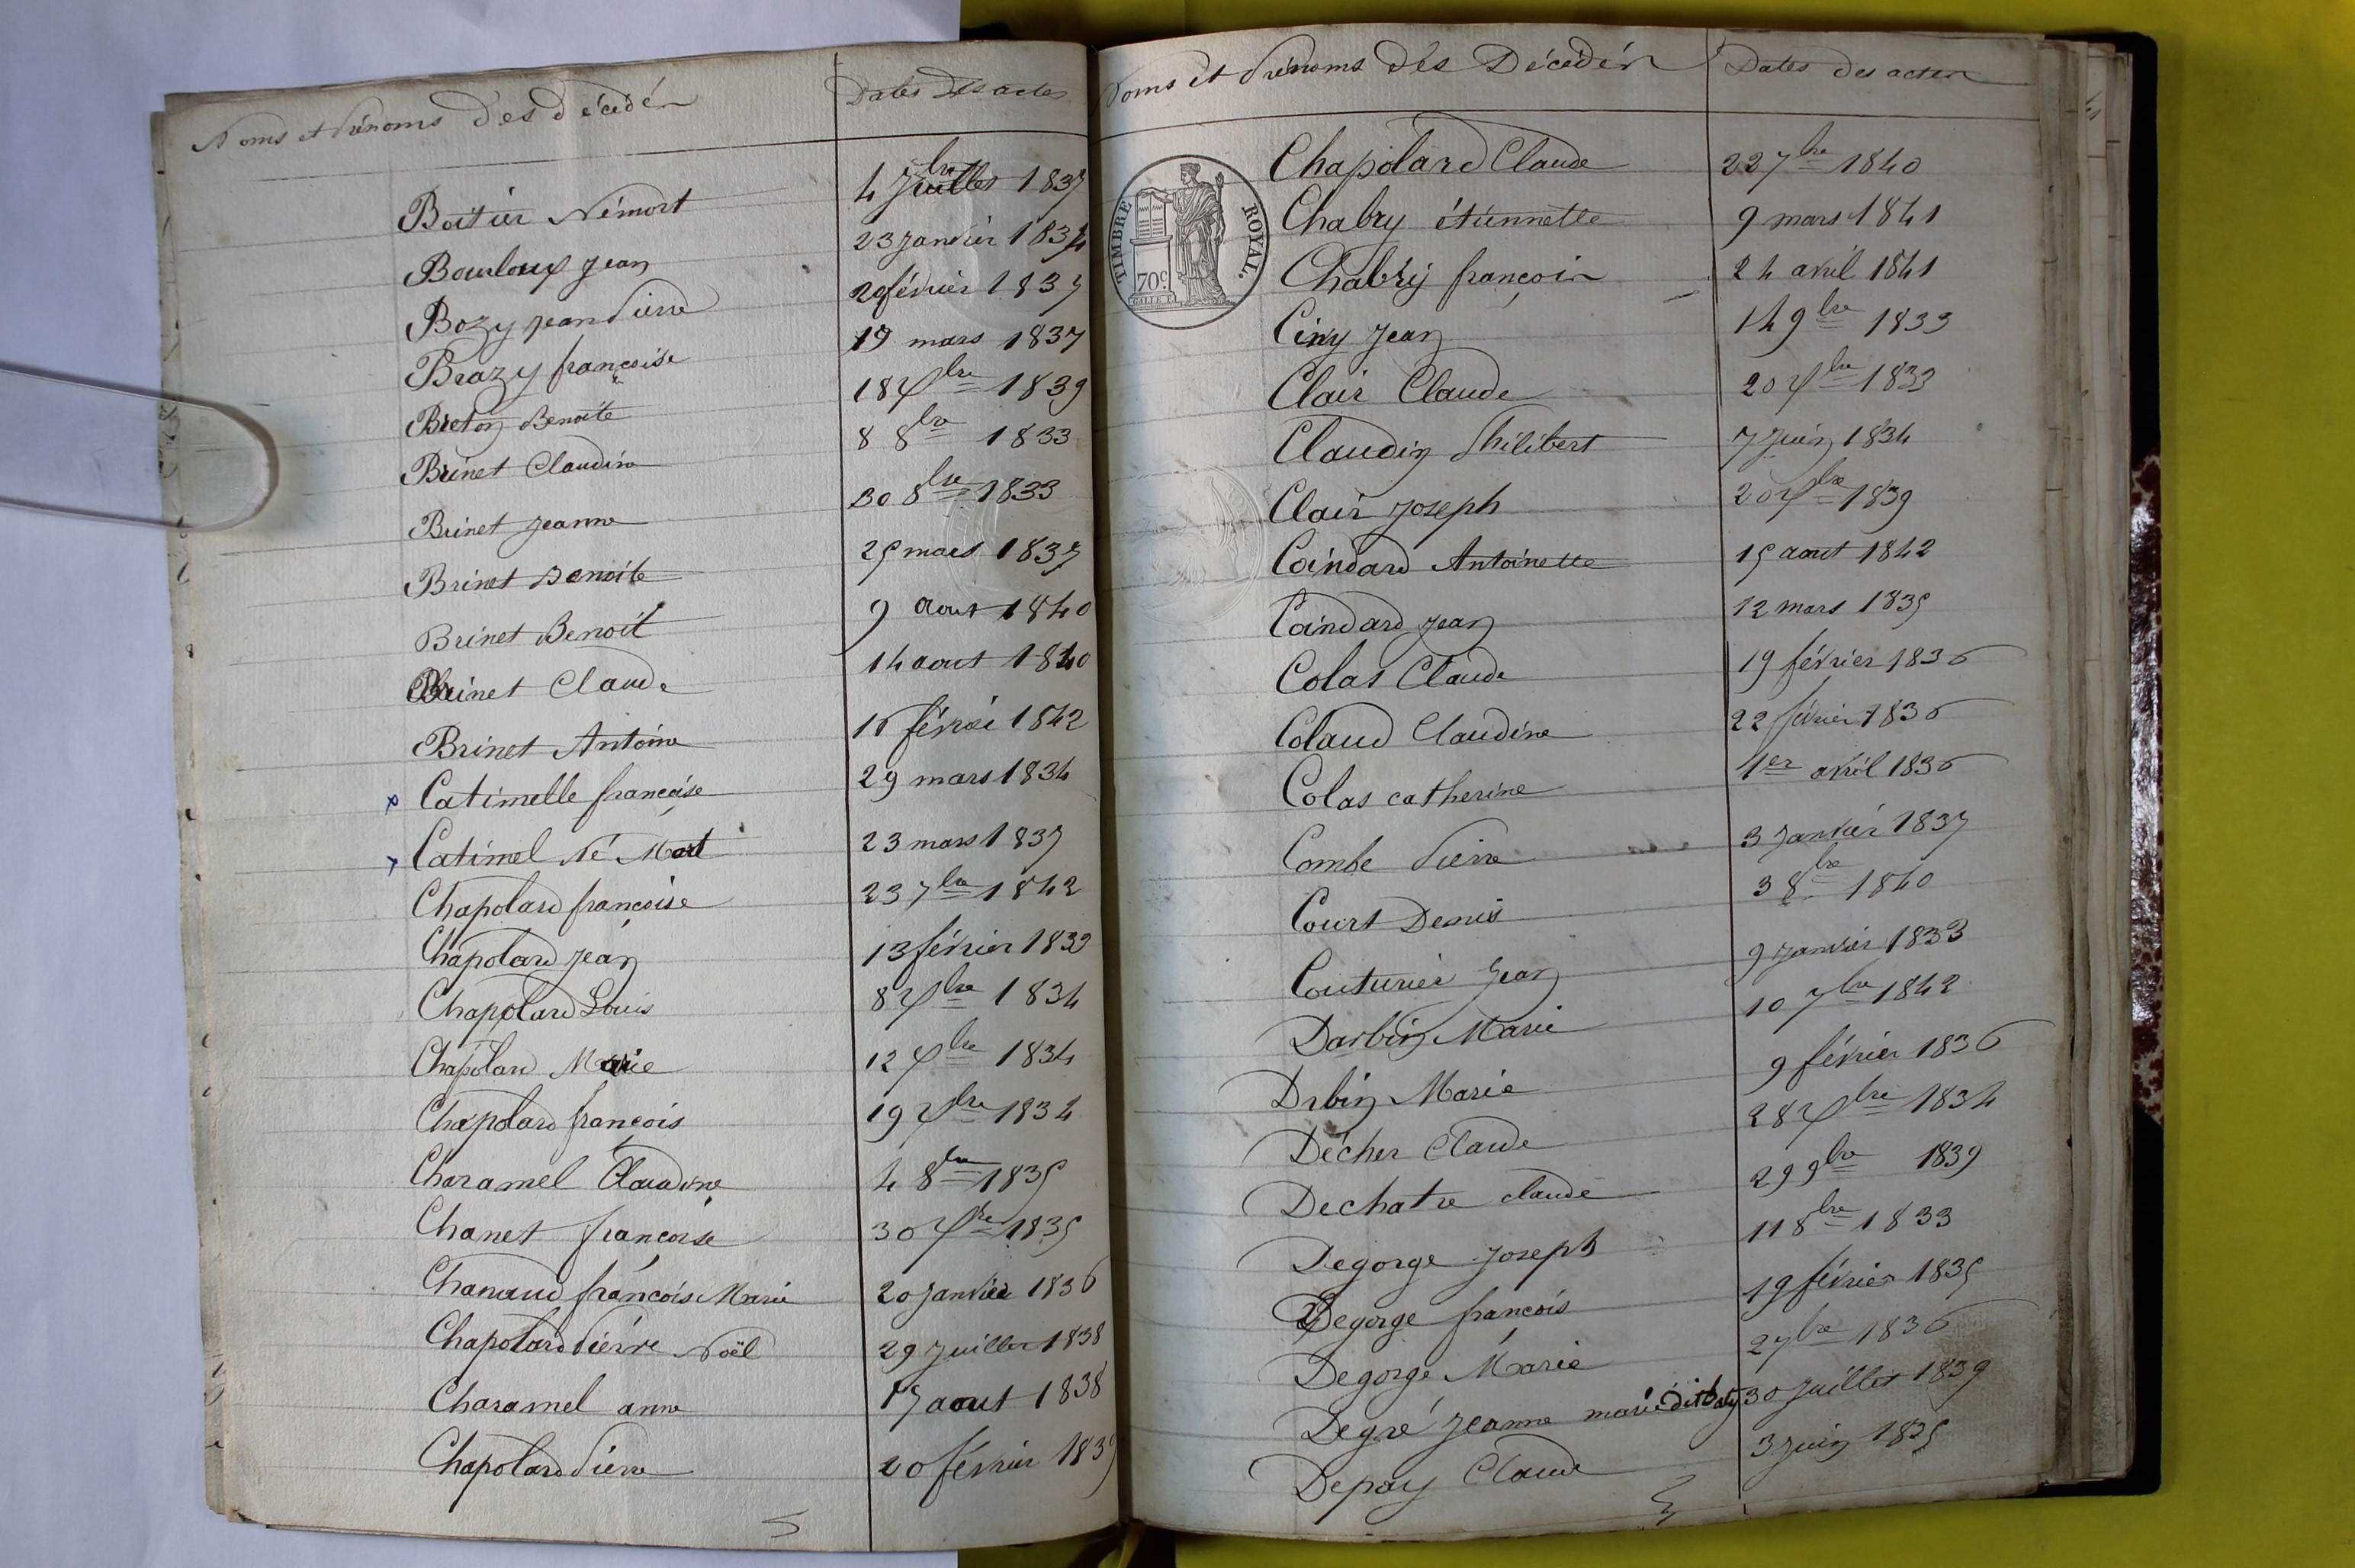 Noms et Prénoms des décédés Dates des actes
Boitier Némort 4 Juillet 1837
Bourloux Jean 23 Janvier 1834
Bozy Jean Pierre 20 février 1835
Brazy françoise 19 mars 1837
Breton Benoite 18 Xbre 1839
Brinet Claudine 8 8bre 1833
Brinet Jeanne 30 8bre 1833
Brinet Benoite 25 mars 1837
Brinet Benoit 9 aout 1840
Brinet Claude 14 aout 1840
Brinet Antoine 16 février 1842
Catimelle françoise 29 mars 1834
Catimel Né Mort 23 mars 1837
Chapolard françoise 23 7bre 1842
Chapolard Jean 13 février 1833
Chapolard Louis 8 Xbre 1834
Chapolard Marie 12 Xbre 1834
Chapolard françois 19 Xbre 1834
Charamel Claudine 4 8bre 1835
Chanet françoise 30 Xbre 1835
Chanaud françois Marie 20 Janvier 1836
Chapolard Pierre Noël 29 Juillet 1838
Charamel anne 17 aout 1838
Chapolard Pierre 20 février 1839
Noms et Prénoms des Décédés Dates des actes
TIMBRE ROYAL.
70c.
Chapolard Claude 22 7bre 1840
Chabry étiennette 9 mars 1841
Chabry françois 24 avril 1841
Ciny Jean 14 9bre 1833
Clair Claude 20 Xbre 1833
Claudin Philibert 7 Juin 1834
Clair Joseph 20 Xbre 1839
Coindard Antoinette 15 aout 1842
Coindard Jean 12 mars 1835
Colas Claude 19 février 1836
Colaud Claudine 22 février 1836
Colas catherine 1er avril 1836
Combe Pierre 3 Janvier 1837
Court Denis 3 8bre 1840
Couturier Jean 9 Janvier 1833
Darbin Marie 10 7bre 1842
Debin Marie 9 février 1836
Décher Claude 28 Xbre 1834
Dechatre claude 29 9bre 1839
Degorge Joseph 11 8bre 1833
Degorge françois 19 février 1835
Degorge Marie 2 7bre 1836
Degré Jeanne marie dit 30 Juillet 1839
Depay Claude 3 Juin 1835